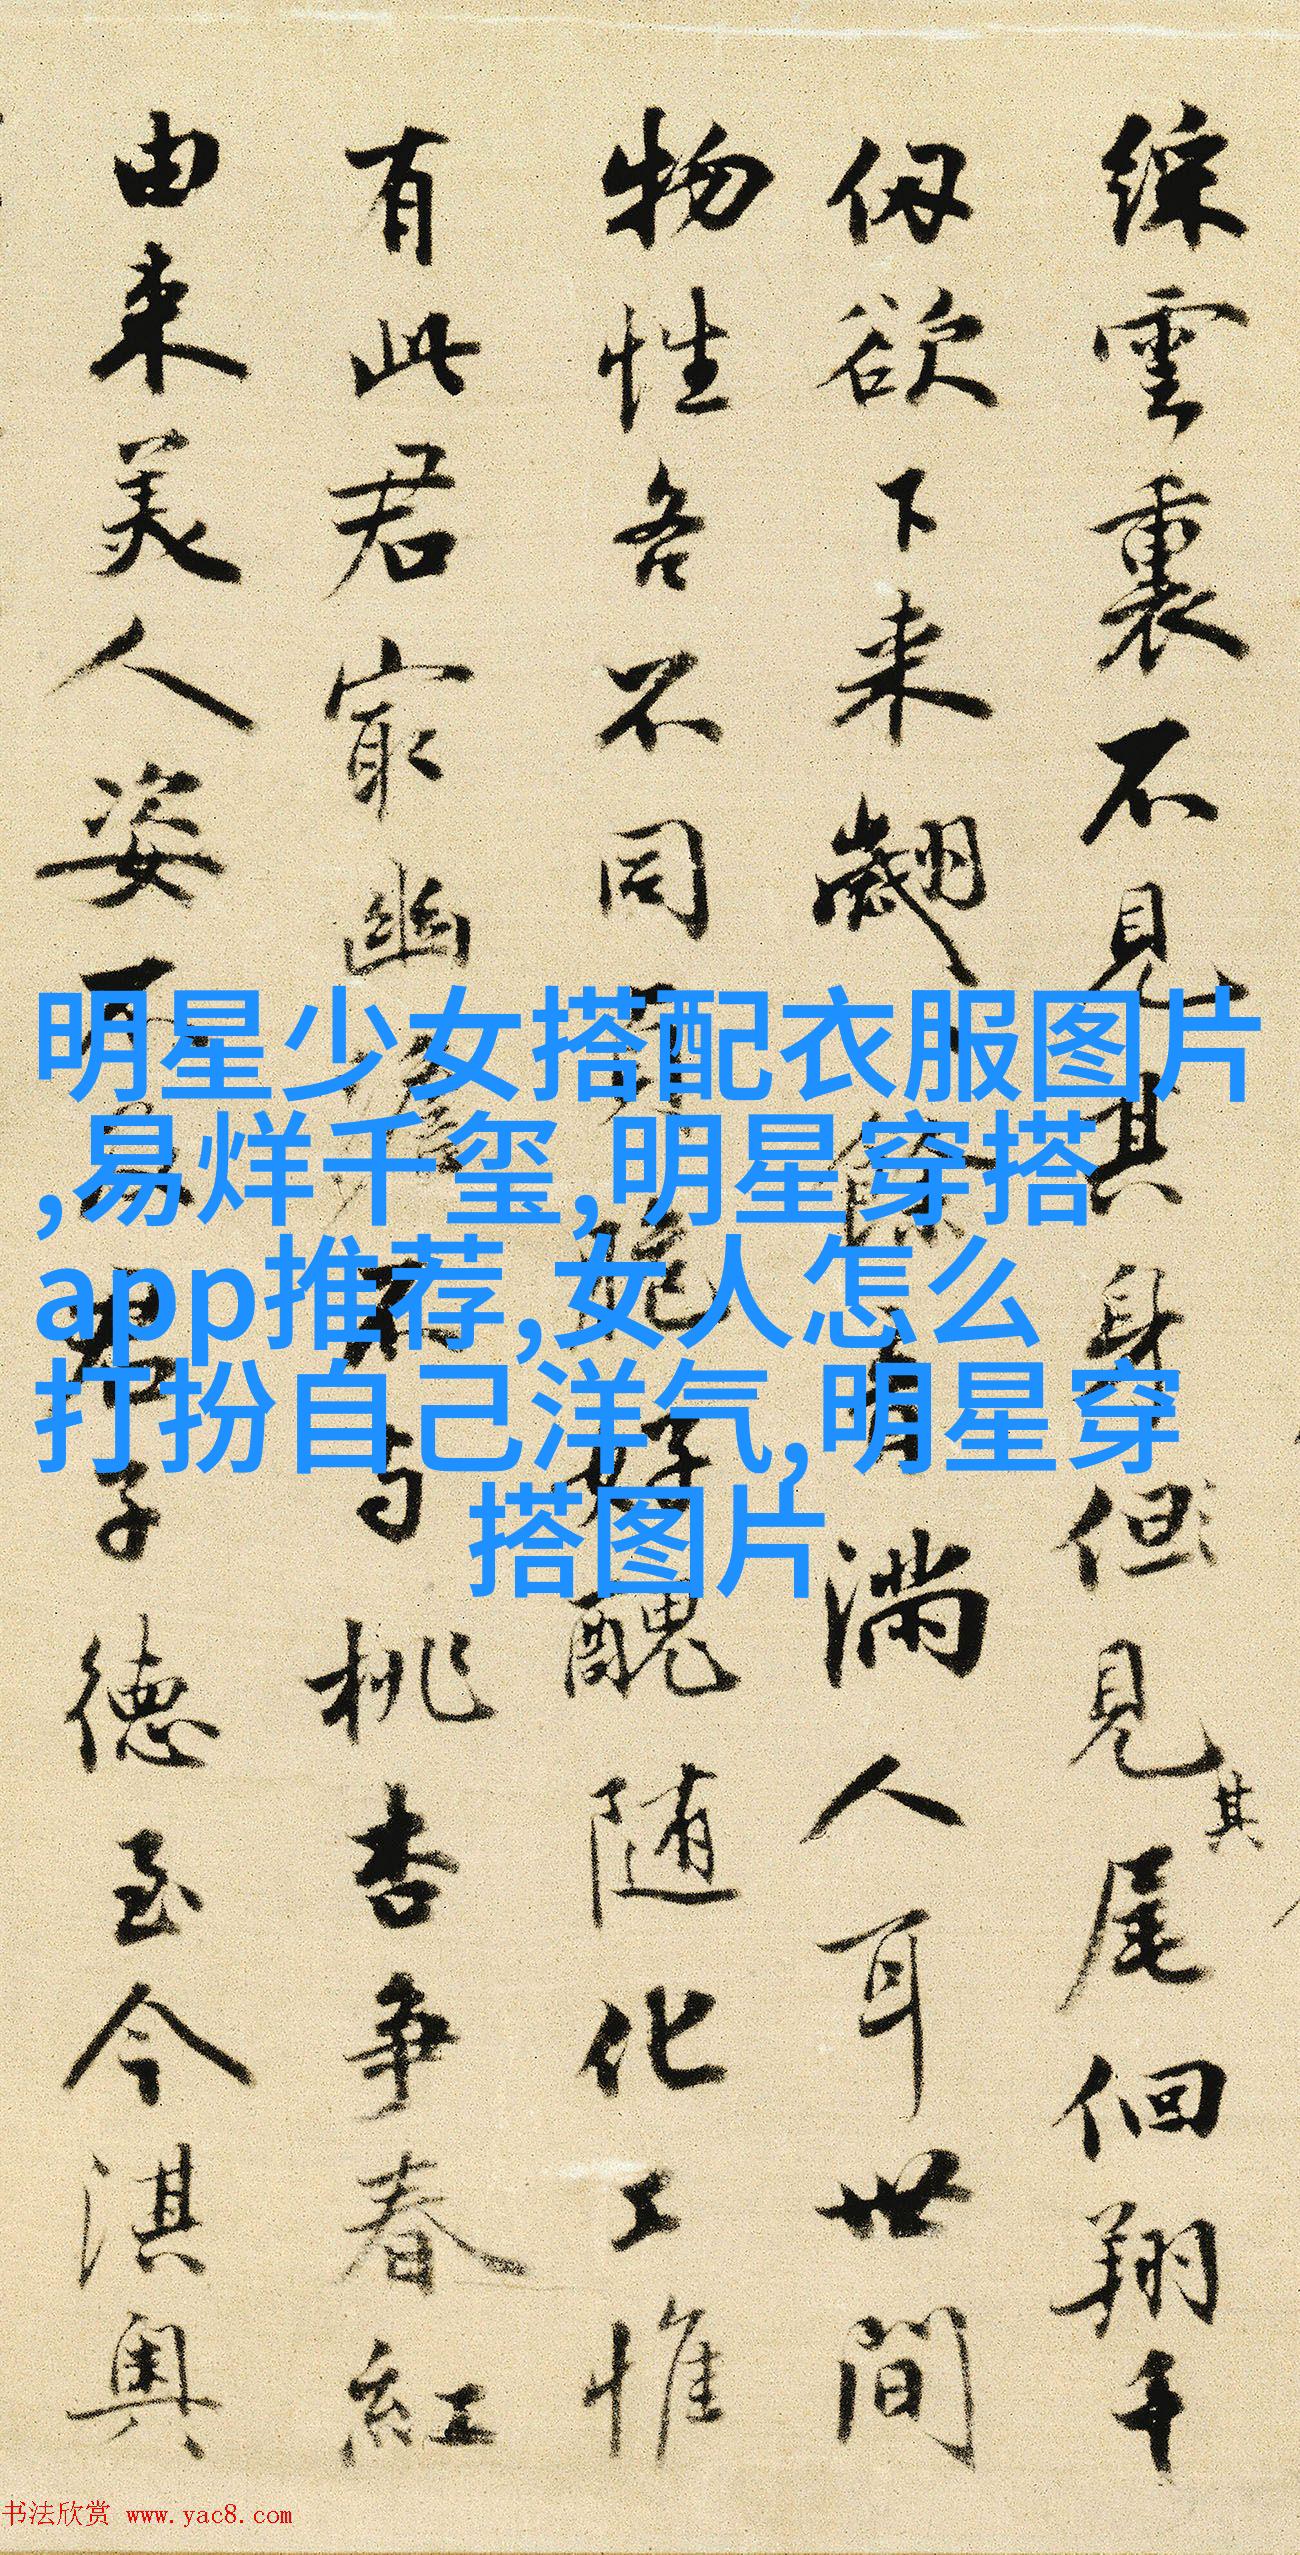 綵雲裏不見其身但見其尾徊翔千
仭欲下来翽餘音滿人耳世間
物性各不同好醜随化工惟
有此君㝡幽与桃杏争春紅
由来美人姿君子德至今淇奥
明星少女搭配衣服图片
,易烊千玺,明星穿搭
app推荐,女人怎么
打扮自己洋气,明星穿
搭图片
书法欣赏 www.yac8.com